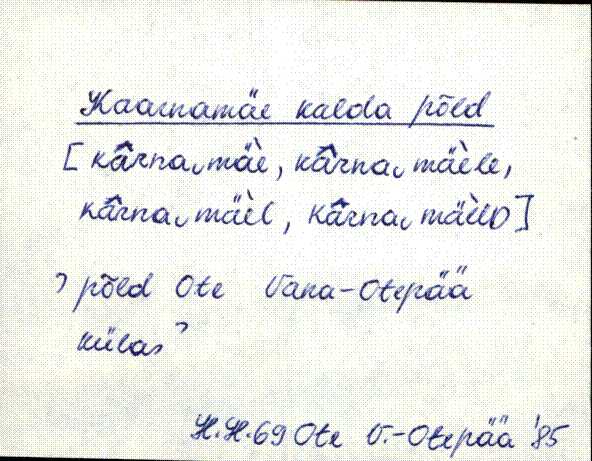 Kaarnamäe kalda põld
[kârna‿mäè, kârna‿mäèle,
kârna‿mäèl, kârna‿mäèlD]
ˀpõld Ote Vana-Otepää
külasˀ
H.H.69 Ote V.-Otepää '85